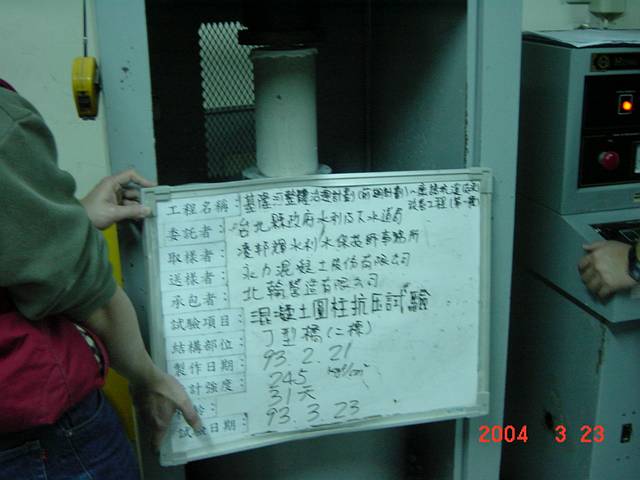 工程名稱：基隆河整體治理計劃(前期計劃)
改善工程(第一標)
委託者：台北縣政府水利及下水道局
取樣者：凌邦輝水利水保技師事務所
送樣者：永力混凝土股份有限公司
承包者：北翰營造有限公司
試驗項目：混凝土圓柱抗压試驗
結構部位：丁型橋(二標)
製作日期：93.2.21
計強度：245 kgf/cm²
齡：31天
試驗日期：93.3.23
2004 3 23